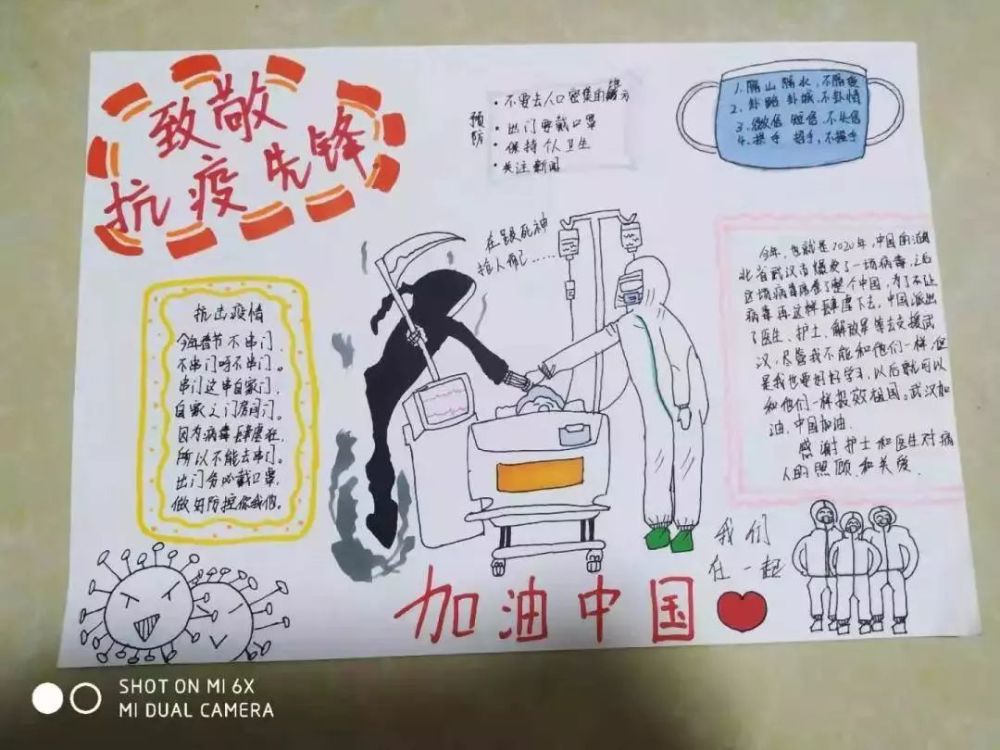 致敬
抗疫先锋
预防
·不要去人口密集的地方
·出门要戴口罩
·保持个人卫生
·关注新闻
1.隔山隔水,不隔爱
2.卦
3.微信 短信,不失信
4.挥手 招手,不握手
在跟死神
抢人呢……
抗击疫情
今年春节不串门,
不串门呀不串门。
串门这串自家门,
自家之门房间门。
因为病毒肆虐在,
所以不能去串门。
出门务必戴口罩,
做好防控你我他。
今年,也就是2020年,中国的湖
北省武汉市爆发了一场病毒,之后
这场病毒席卷了整个中国,为了不让
病毒再这样肆虐下去,中国派出
了医生、护士、解放军等去支援武
汉,尽管我不能和他们一样,但
是我也要好好学习,以后就可以
和他们一样报效祖国。武汉加
油,中国加油.
感谢护士和医生对病
人的照顾和关爱.
我们
在一起
加油中国
SHOT ON MI 6X
MI DUAL CAMERA